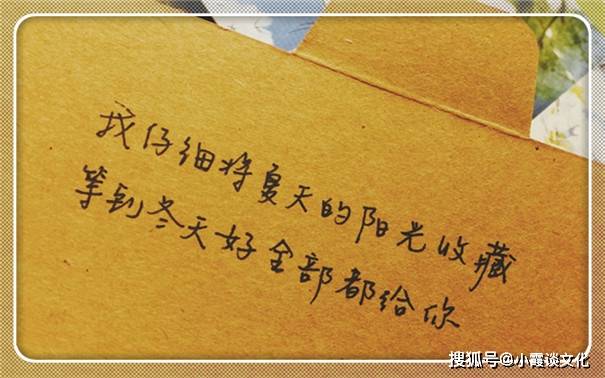 我仔细将夏天的阳光收藏
等到冬天好全部都给你
搜狐号@小霞谈文化